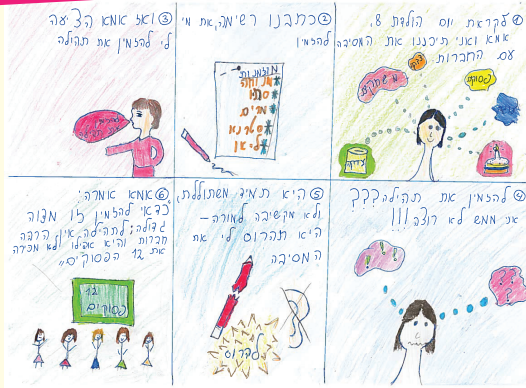 ① לקראת יום הולדת 8,
אמא ואני תיכננו את המסיבה
עם החברות
משחקים
פסוקים
② כתבנו רשימה, את מי
להזמין
מוזמנות
מנוחה
מרים
③ ואז אמא הציעה
לי להזמין את תהילה
④ להזמין את תהילה???
אני ממש לא רוצה!!!
⑤ היא תמיד משתוללת,
ולא מקשיבה למורה –
היא תהרוס לי את
המסיבה
להרוס
⑥ אמא אמרה:
"כדאי להזמין זו מצוה
גדולה; לתהילה אין הרבה
חברות והיא אפילו לא מכירה
את 12 הפסוקים"
12
פסוקים